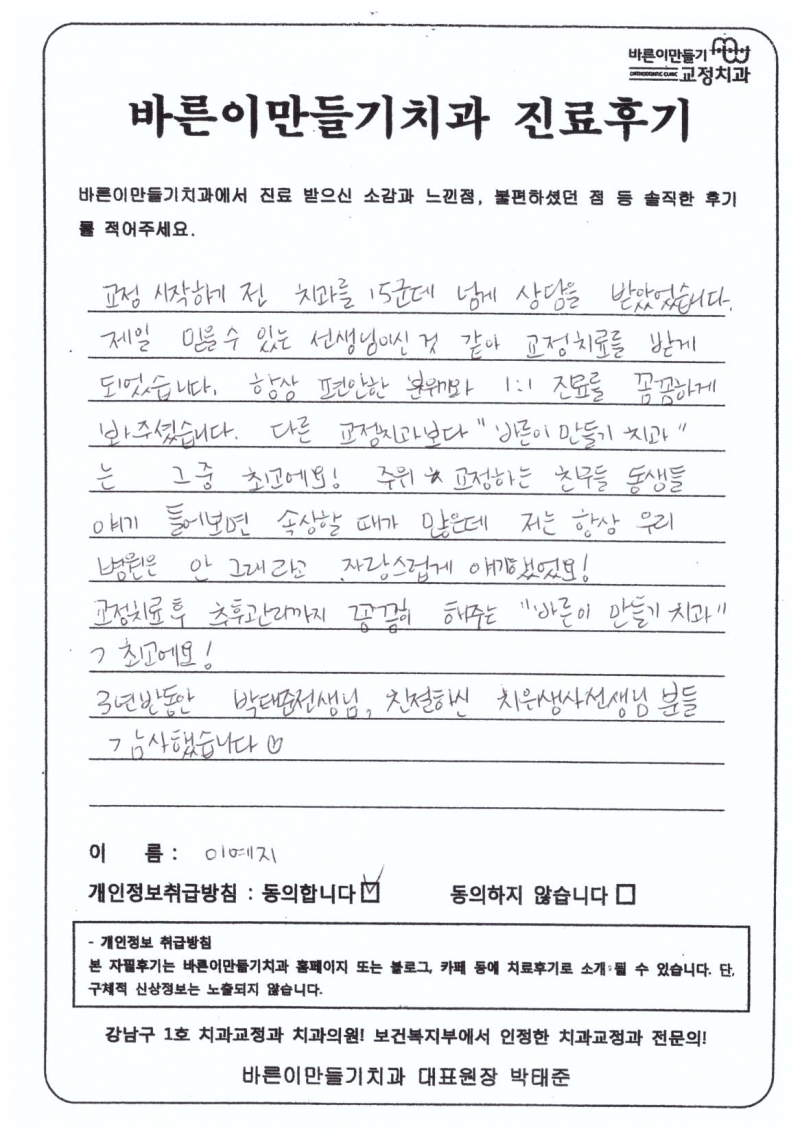 바른이만들기
ORTHODONTIC CLINIC 교정치과
바른이만들기치과 진료후기
바른이만들기치과에서 진료 받으신 소감과 느낀점, 불편하셨던 점 등 솔직한 후기
를 적어주세요.
교정 시작하기 전 치과를 15군데 넘게 상담을 받았었습니다.
제일 믿을 수 있는 선생님이신 것 같아 교정치료를 받게
되었습니다. 항상 편안한 분위기와 1:1 진료를 꼼꼼하게
봐주셨습니다. 다른 교정치과보다 "바른이 만들기 치과"
는 그 중 최고에요! 주위 교정하는 친구들 동생들
얘기 들어보면 속상할 때가 많은데 저는 항상 우리
병원은 안 그래라고 자랑스럽게 얘기했었요!
교정치료 후 추후관리까지 꼼꼼히 해주는 "바른이 만들기 치과"
가 최고에요!
3년반동안 박태준선생님, 친절하신 치위생사선생님 분들
감사했습니다 ♡
이 름 : 이예지
개인정보취급방침 : 동의합니다 ☑ 동의하지 않습니다 ☐
- 개인정보 취급방침
본 자필후기는 바른이만들기치과 홈페이지 또는 블로그, 카페 등에 치료후기로 소개 될 수 있습니다. 단,
구체적 신상정보는 노출되지 않습니다.
강남구 1호 치과교정과 치과의원! 보건복지부에서 인정한 치과교정과 전문의!
바른이만들기치과 대표원장 박태준